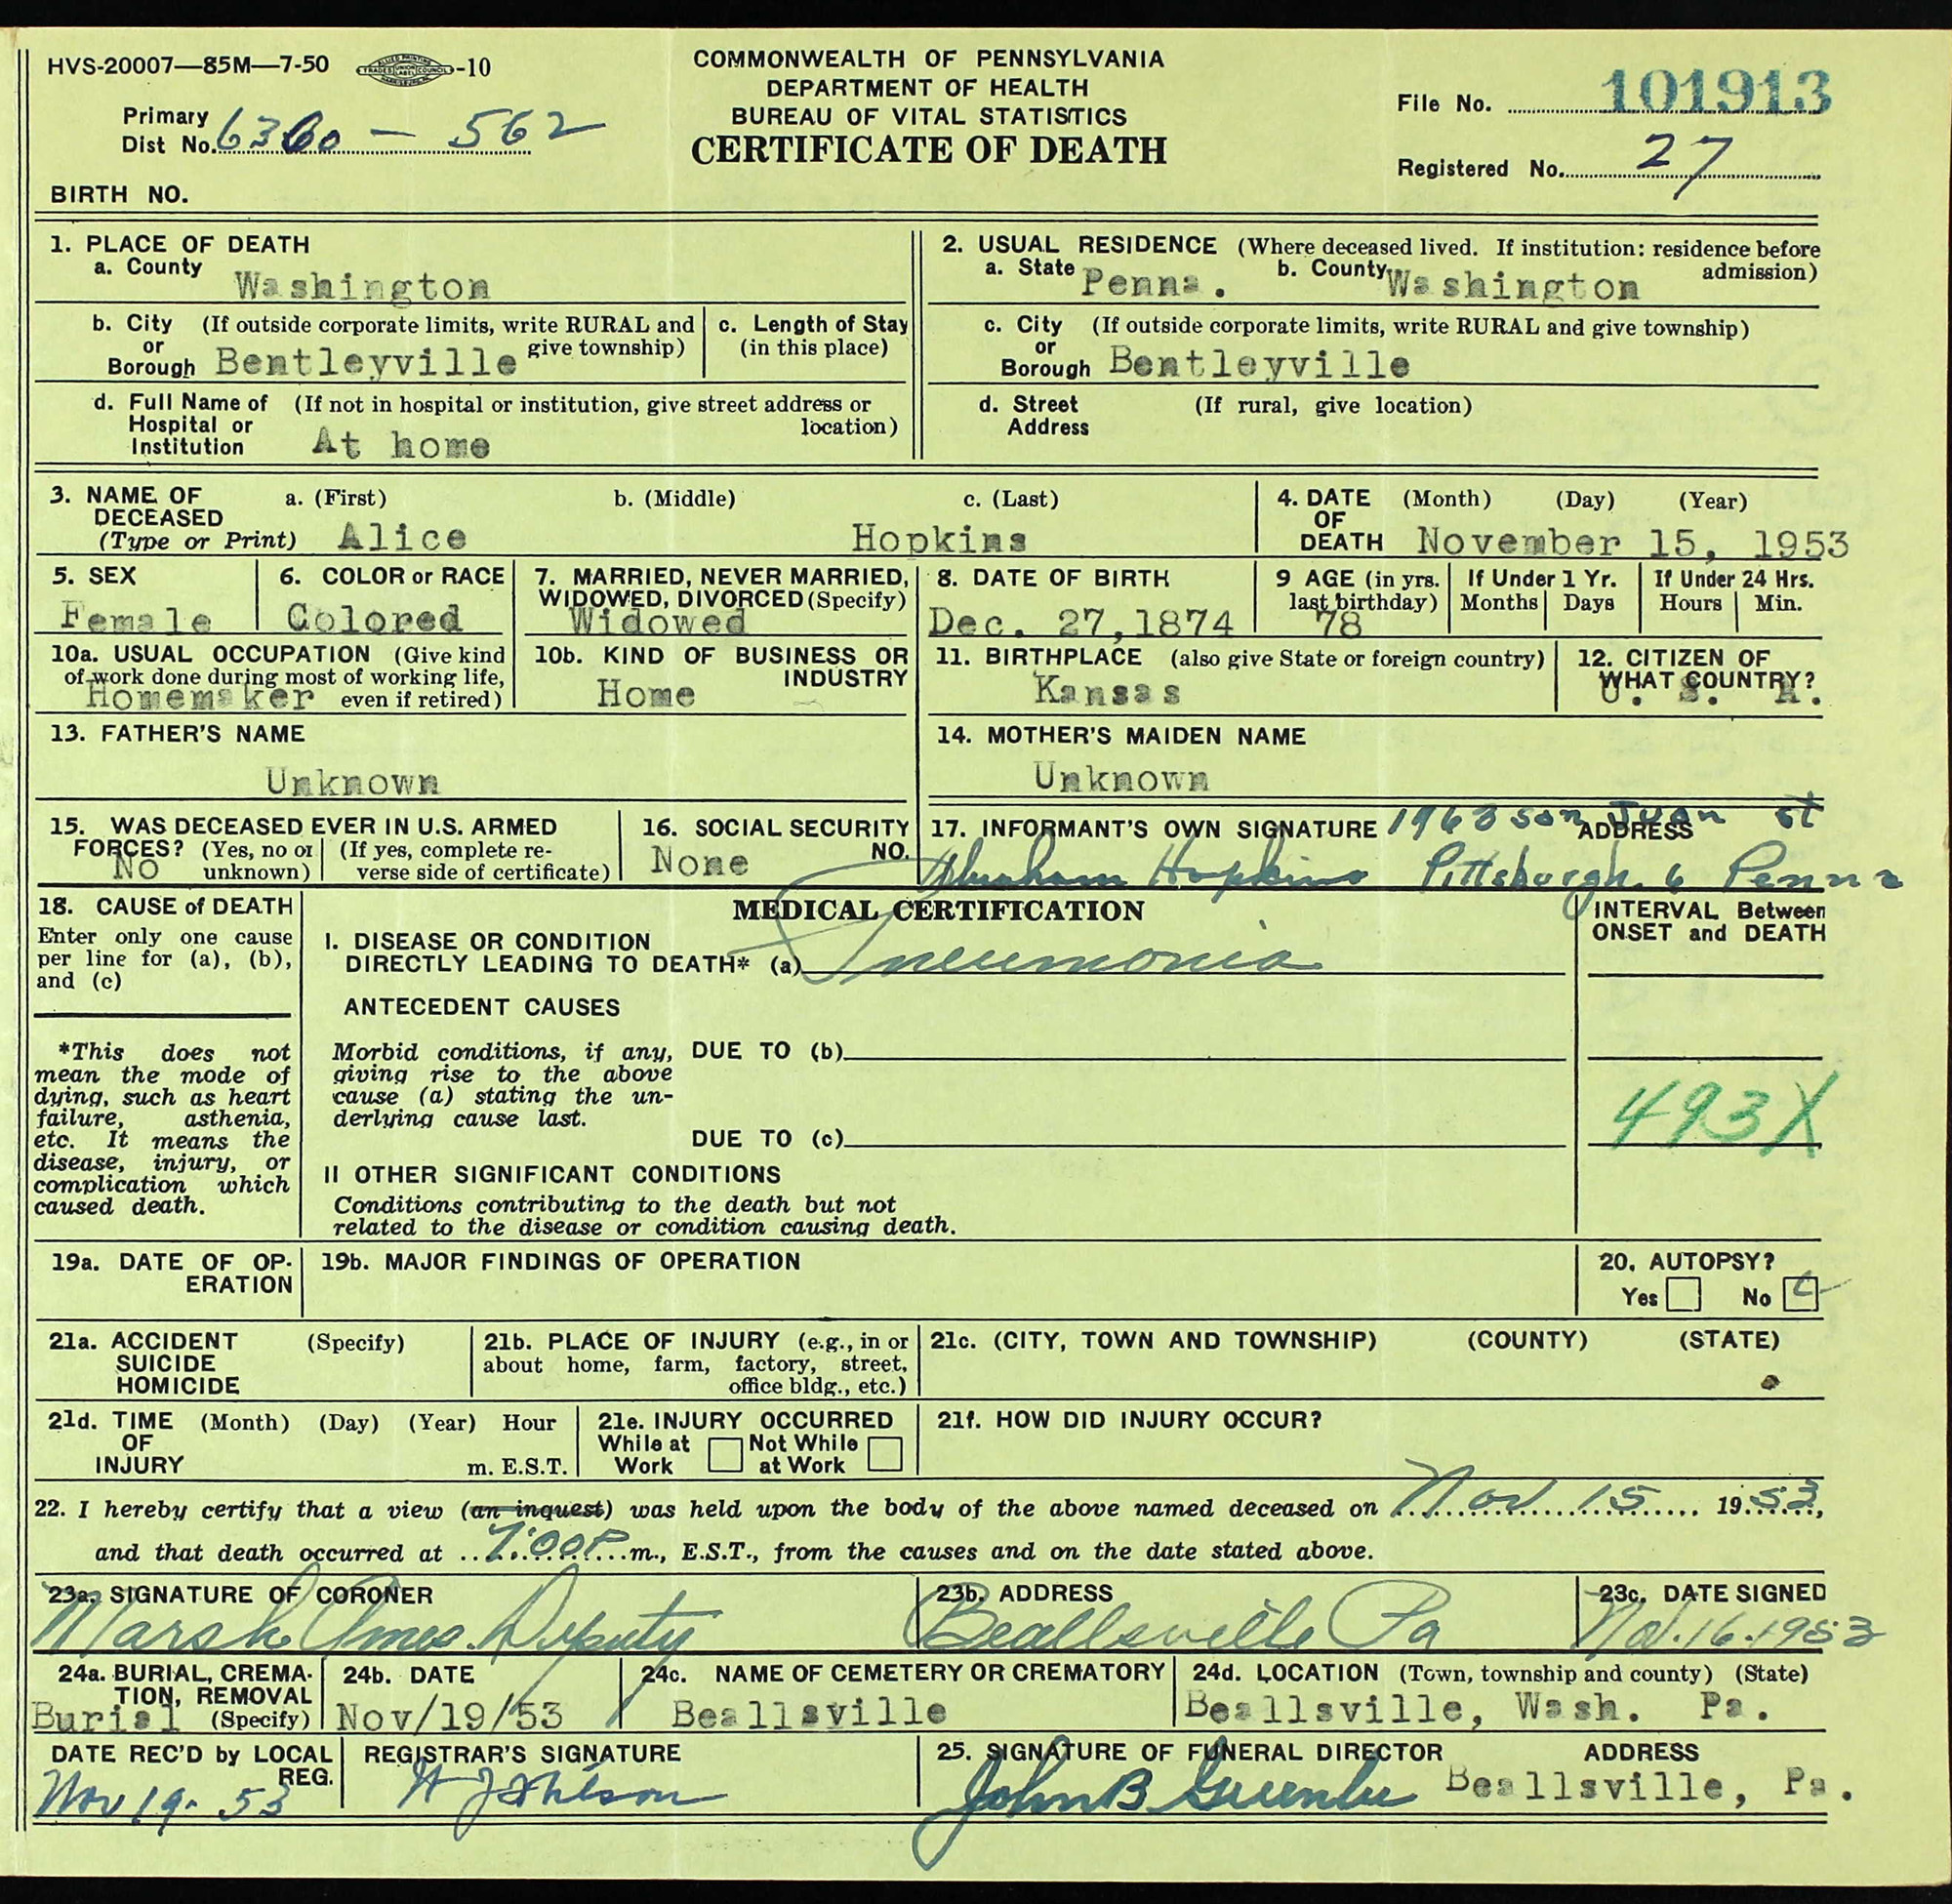 HVS-20007—85M—7-50 -10
COMMONWEALTH OF PENNSYLVANIA
DEPARTMENT OF HEALTH
BUREAU OF VITAL STATISTICS
CERTIFICATE OF DEATH
File No. 101913
Primary
Dist No. 6360 — 562
Registered No. 27
BIRTH NO.
1. PLACE OF DEATH
a. County Washington
2. USUAL RESIDENCE (Where deceased lived. If institution: residence before admission)
a. State Penna. b. County Washington
b. City or Borough (If outside corporate limits, write RURAL and give township) Bentleyville
c. Length of Stay (in this place)
c. City or Borough (If outside corporate limits, write RURAL and give township) Bentleyville
d. Full Name of Hospital or Institution (If not in hospital or institution, give street address or location) At home
d. Street Address (If rural, give location)
3. NAME OF DECEASED (Type or Print)
a. (First) Alice b. (Middle) c. (Last) Hopkins
4. DATE OF DEATH (Month) (Day) (Year) November 15, 1953
5. SEX Female
6. COLOR or RACE Colored
7. MARRIED, NEVER MARRIED, WIDOWED, DIVORCED (Specify) Widowed
8. DATE OF BIRTH Dec. 27,1874
9 AGE (in yrs. last birthday) 78
If Under 1 Yr. Months Days
If Under 24 Hrs. Hours Min.
10a. USUAL OCCUPATION (Give kind of work done during most of working life, even if retired) Homemaker
10b. KIND OF BUSINESS OR INDUSTRY Home
11. BIRTHPLACE (also give State or foreign country) Kansas
12. CITIZEN OF WHAT COUNTRY? U. S. A.
13. FATHER'S NAME
Unknown
14. MOTHER'S MAIDEN NAME
Unknown
15. WAS DECEASED EVER IN U.S. ARMED FORCES? (Yes, no or unknown) (If yes, complete reverse side of certificate) NO
16. SOCIAL SECURITY NO. None
17. INFORMANT'S OWN SIGNATURE ADDRESS 1963 San Juan St
Abraham Hopkins Pittsburgh 6 Penna
18. CAUSE of DEATH
Enter only one cause per line for (a), (b), and (c)
MEDICAL CERTIFICATION
INTERVAL Between ONSET and DEATH
I. DISEASE OR CONDITION
DIRECTLY LEADING TO DEATH* (a) Pneumonia
ANTECEDENT CAUSES
*This does not mean the mode of dying, such as heart failure, asthenia, etc. It means the disease, injury, or complication which caused death.
Morbid conditions, if any, giving rise to the above cause (a) stating the underlying cause last.
DUE TO (b)
DUE TO (c)
493X
II OTHER SIGNIFICANT CONDITIONS
Conditions contributing to the death but not
related to the disease or condition causing death.
19a. DATE OF OPERATION
19b. MAJOR FINDINGS OF OPERATION
20. AUTOPSY?
Yes No
21a. ACCIDENT SUICIDE HOMICIDE (Specify)
21b. PLACE OF INJURY (e.g., in or about home, farm, factory, street, office bldg., etc.)
21c. (CITY, TOWN AND TOWNSHIP) (COUNTY) (STATE)
21d. TIME OF INJURY (Month) (Day) (Year) Hour m. E.S.T.
21e. INJURY OCCURRED While at Work Not While at Work
21f. HOW DID INJURY OCCUR?
22. I hereby certify that a view (an inquest) was held upon the body of the above named deceased on Nov 15 1953,
and that death occurred at 7:00 P m., E.S.T., from the causes and on the date stated above.
23a. SIGNATURE OF CORONER
Marsh Ames. Deputy
23b. ADDRESS
Beallsville Pa
23c. DATE SIGNED
Nov. 16. 1953
24a. BURIAL, CREMATION, REMOVAL (Specify) Burial
24b. DATE Nov/19/53
24c. NAME OF CEMETERY OR CREMATORY Beallsville
24d. LOCATION (Town, township and county) (State) Beallsville, Wash. Pa.
DATE REC'D by LOCAL REG. Nov 19- 53
REGISTRAR'S SIGNATURE
25. SIGNATURE OF FUNERAL DIRECTOR ADDRESS
John B Beallsville, Pa.